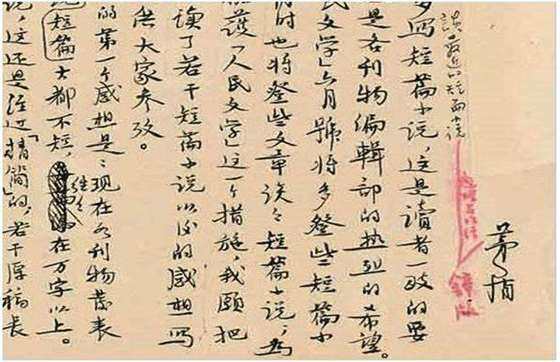 茅盾
談最近的短篇小说
多写短篇小说，这是讀者一致的要
是各刊物編輯部的热烈的希望。
民文学」六月號将多登些短篇小
时也将登些文章谈谈短篇小说，为
护「人民文学」这一个措施，我願把
讀了若干短篇小说以后的感想写
供大家参考。
的第一个感想是：现在各刊物發表
短篇，大都不短，往往在万字以上。
说，这还是经过「精简的，若干原稿長